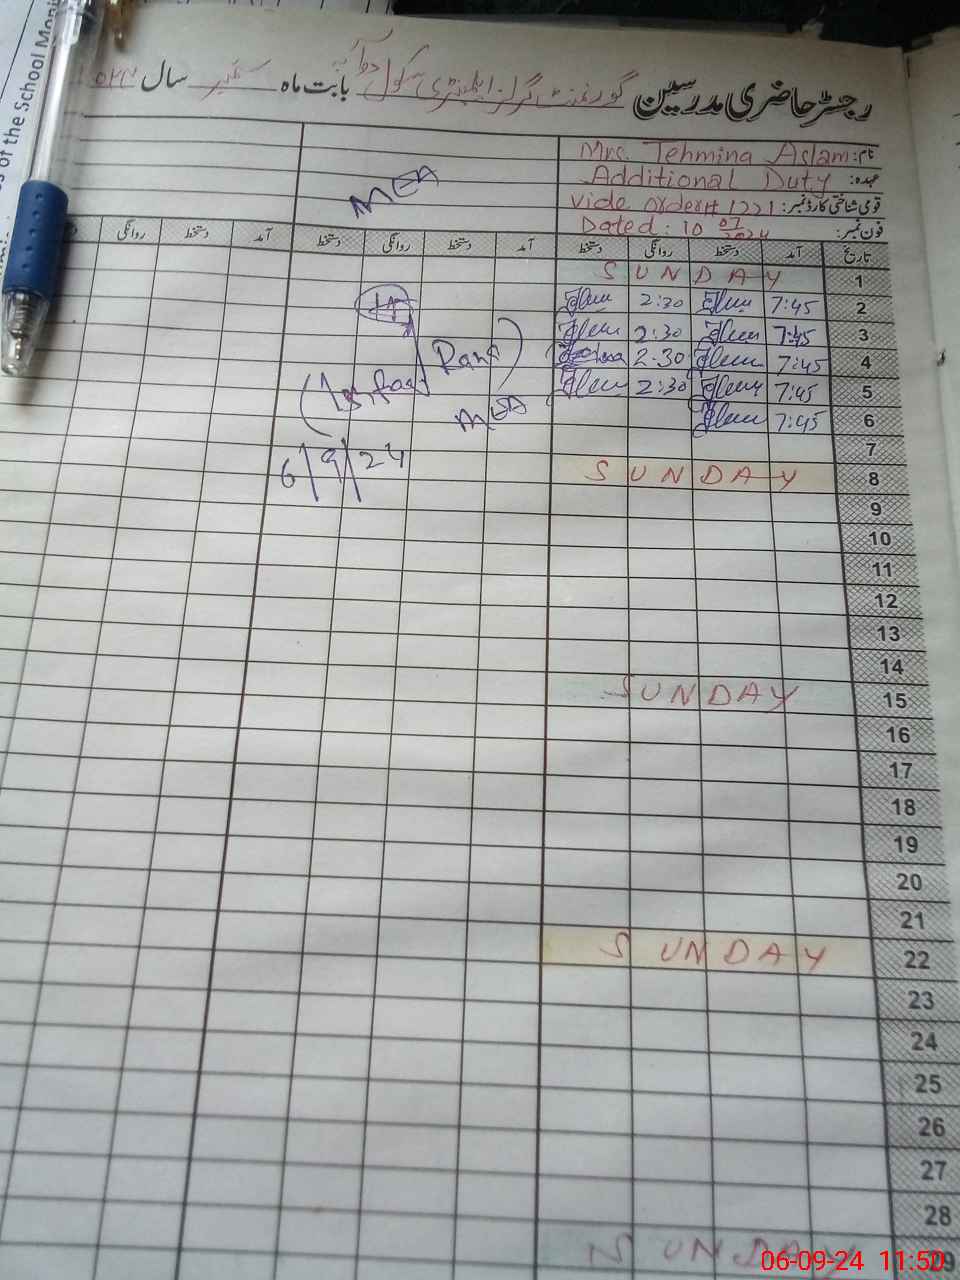 رجسٹر حاضری مدرسین گورنمنٹ گرلز ایلیمنٹری سکول بابت ماہ ستمبر سال
نام: Mrs. Tehmina Aslam
عہدہ: Additional Duty
قومی شناختی کارڈ نمبر: vide order# 1221
فون نمبر: Dated: 10 07 2024
MEA
تاریخ آمد دستخط روانگی دستخط آمد دستخط روانگی دستخط آمد دستخط روانگی
1 SUNDAY
2 7:45 2:30
3 7:45 2:30
4 7:45 2:30
5 7:45 2:30
6 7:45
7
8 SUNDAY
(Ishfaq Rana)
MEA
6/9/24
9
10
11
12
13
14
15 SUNDAY
16
17
18
19
20
21
22 SUNDAY
23
24
25
26
27
28
29 SUNDAY
of the School Moni
06-09-24 11:50